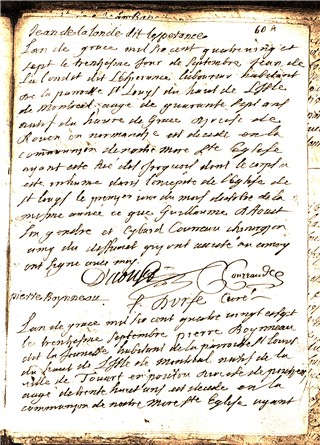 Jean de la londe dit lesperance
60 A
L'an de grace mil six cent quatre vingt et
sept le trentiesme jour de septembre Jean de
la londet dit l'Esperance laboureur habitant
de la paroisse St Louys du haut de l'Isle
de Montreal aagé de quarante sept ans
natif du havre de Grace diocese de
Rouen en normandie est decedé en la
communion de nostre Mere Ste Eglise
ayant esté tué des Iroquois dont le corps a
esté inhumé dans l'Eglise de
St Louys le premier jour du mois d'octobre de la
mesme année ce que Guillaume d'Aoust
son gendre et Cybard Coureau chirurgien
amy du deffunct qui ont assisté au convoy
ont signé avec moy
Daoust
Coureaud
P. Remy
Curé
pierre Bonneau
L'an de grace mil six cent quatre vingt et sept
le trentiesme septembre pierre Bonneau
dit la Jeunesse habitant de la paroisse St Louys
du haut de l'Isle de Montreal natif de la
ville de Touars en poitou diocese de poitiers
aagé de trente huict ans est decedé en la
communion de nostre Mere Ste Eglise ayant